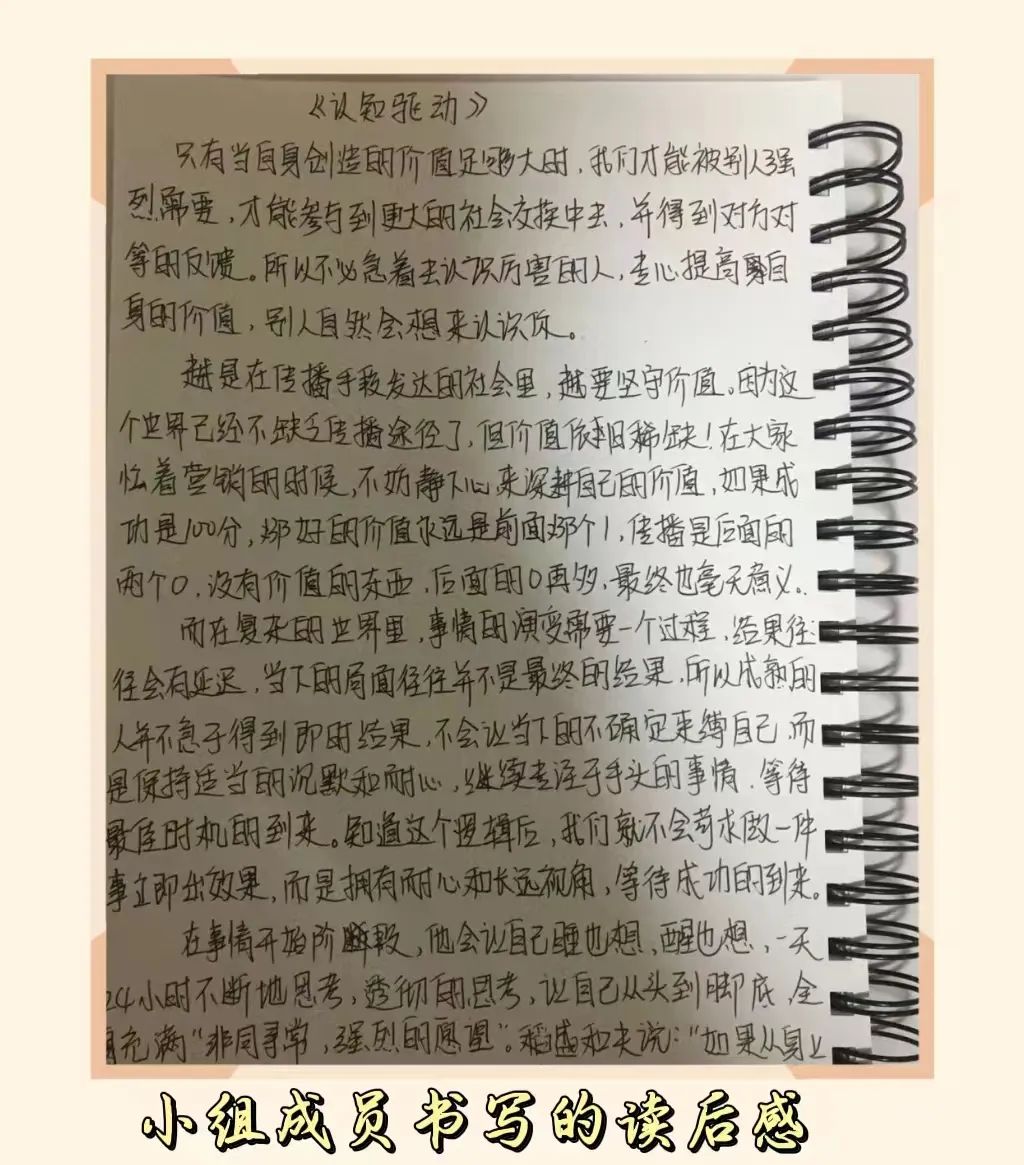 《认知驱动》
只有当自身创造的价值足够大时，我们才能被别人强
烈需要，才能参与到更大的社会交换中去，并得到对方对
等的反馈。所以不必急着去认识厉害的人，专心提高自
身的价值，别人自然会想来认识你。
越是在传播手段发达的社会里，越要坚守价值。因为这
个世界已经不缺乏传播途径了，但价值依旧稀缺！在大家
忙着营销的时候，不妨静下心来深耕自己的价值，如果成
功是100分，那好的价值永远是前面那个1，传播是后面的
两个0，没有价值的东西，后面的0再多，最终也毫无意义。
而在复杂的世界里，事情的演变需要一个过程，结果往
往会有延迟，当下的局面往往并不是最终的结果，所以成熟的
人并不急于得到即时结果，不会让当下的不确定来缚自己，而
是保持适当的沉默和耐心，继续专注于手头的事情，等待
最佳时机的到来。知道这个逻辑后，我们就不会苛求做一件
事立即出效果，而是拥有耐心和长远视角，等待成功的到来。
在事情开始阶段，他会让自己睡也想，醒也想，一天
24小时不断地思考，透彻的思考，让自己从头到脚底，全
充满“非同寻常，强烈的愿望”。稻盛和夫说：“如果从身上
小组成员书写的读后感